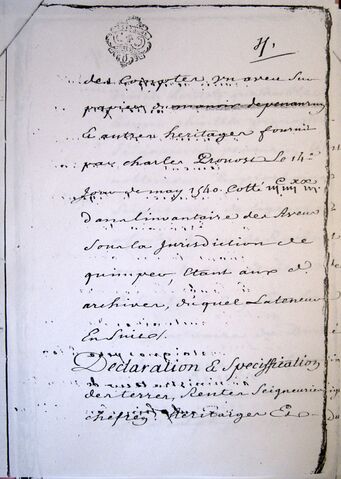 des Comptes, un aveu Sur
papier du manoir de penanrun
& autres heritages fourni
par charles Provost Le 14e
Jour de may 1540. Cotté
dans l'invantaire des Aveux
Sous la Jurisdiction de
quimper, Etant aux d
archives, duquel La teneur
En Suit
Declaration & Speciffication
des terres, Rentes Seigneuries
chefrentes Heritaiges &